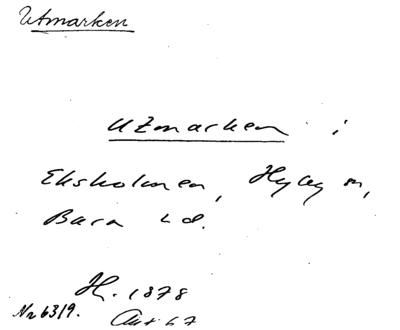 Utmarken
Utmarken i
Eksholmen, Hyby sn,
Bara hd.
H. 1878
No 6319.
Akt 67